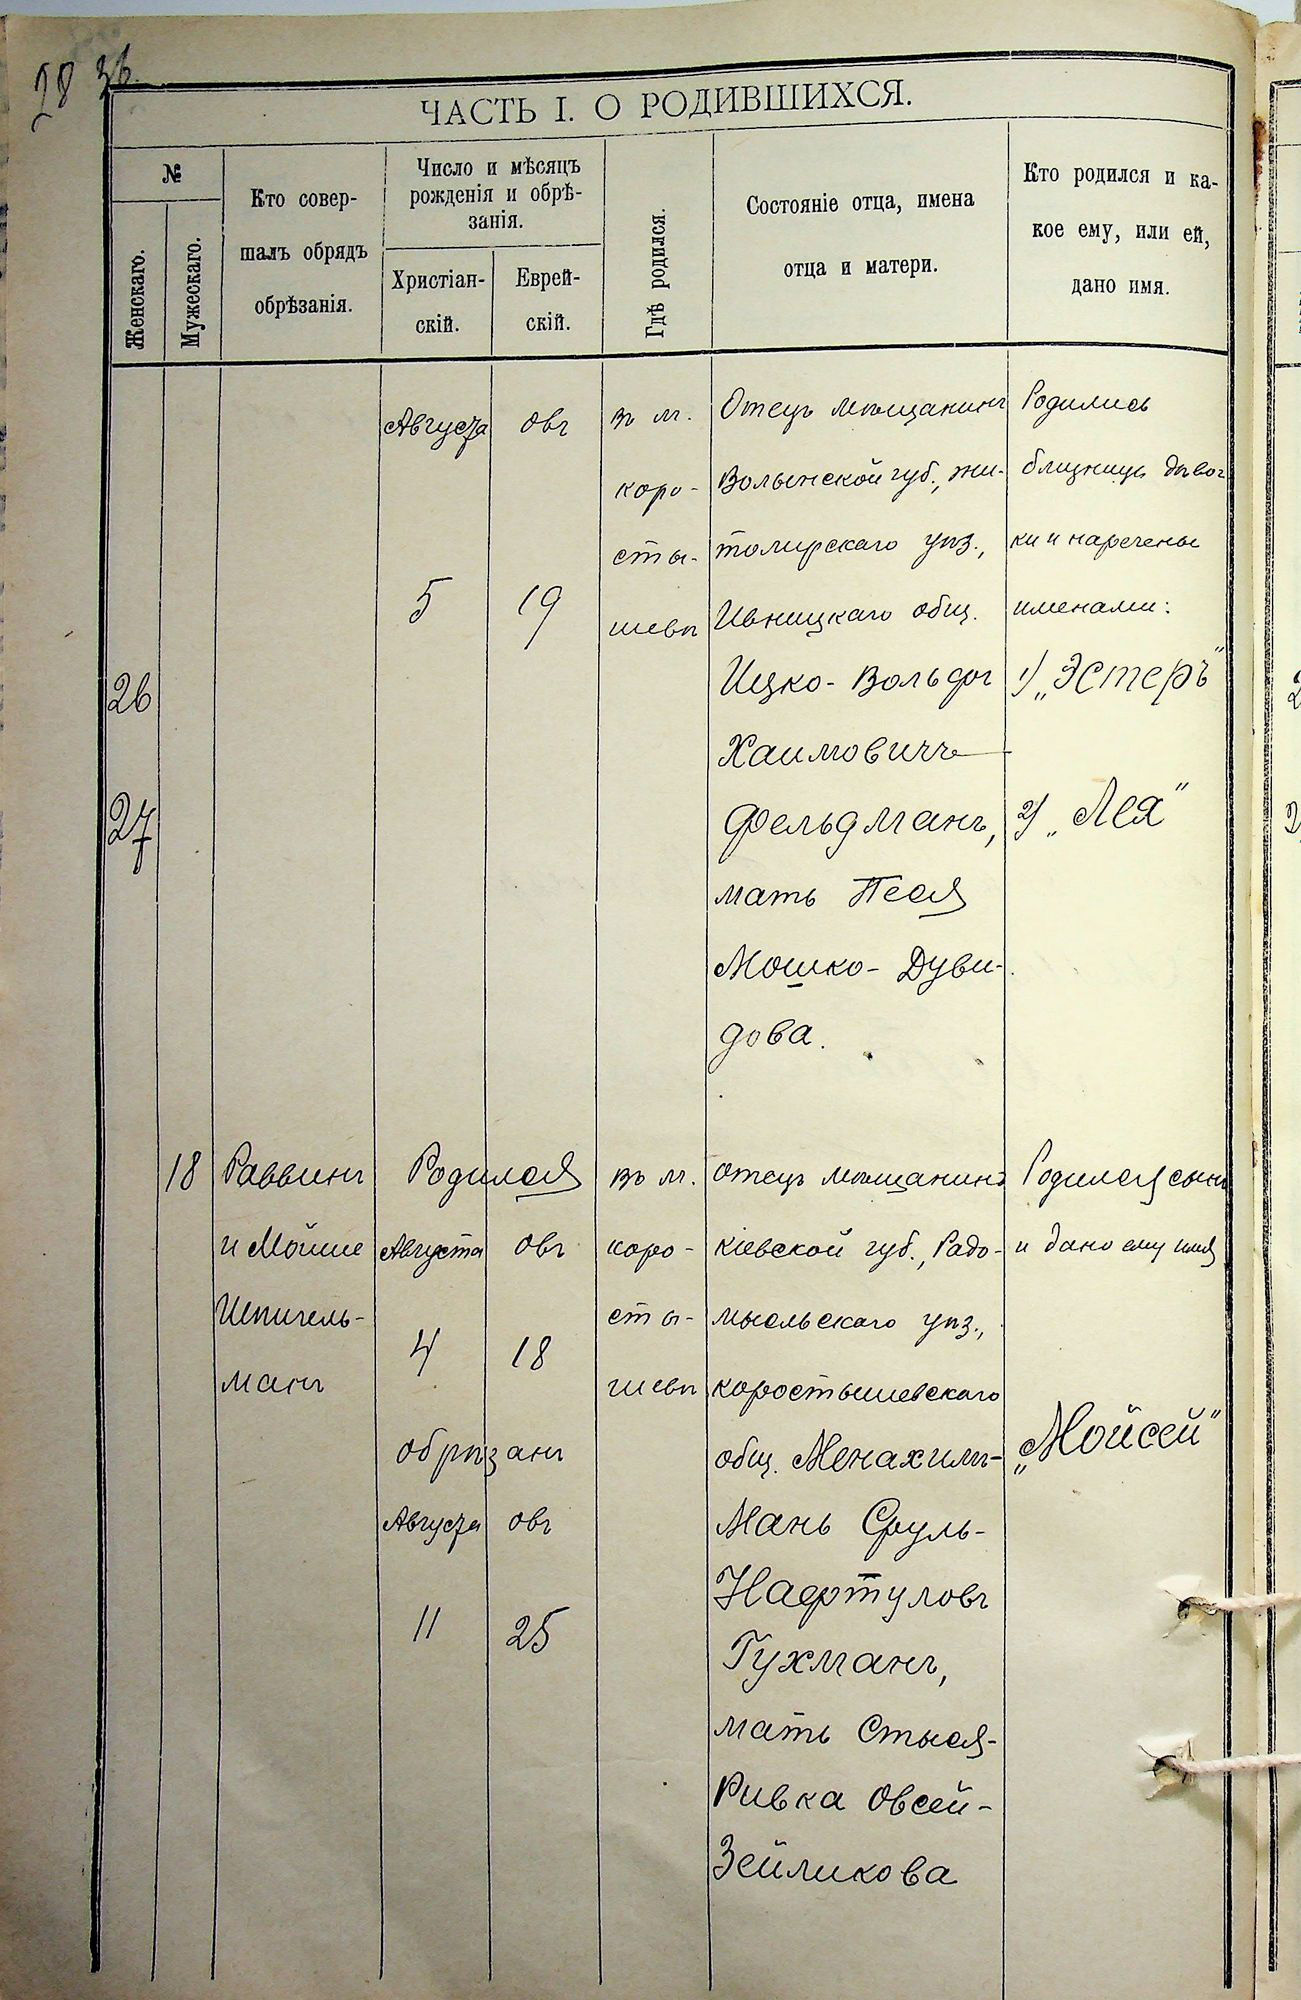 28 36.
ЧАСТЬ I. О РОДИВШИХСЯ.
№
Женскаго.
Мужескаго.
Кто совер-
шалъ обрядъ
обрѣзанія.
Число и мѣсяцъ
рожденія и обрѣ-
занія.
Христіан-
скій.
Еврей-
скій.
Гдѣ родился.
Состояніе отца, имена
отца и матери.
Кто родился и ка-
кое ему, или ей,
дано имя.
26
27
Августа
5
овъ
19
въ м.
коро-
сты-
шевѣ
Отецъ мѣщанинъ
Волынской губ., жи-
томирскаго уѣз.,
Ивницкаго общ.
Ицко-Вольфъ
Хаимовичъ
Фельдманъ,
мать Песя
Мошко-Дуви-
дова.
Родились
близнецы дѣвоч
ки и наречены
именами:
1) „Эстеръ"
2) „Лея"
18
Раввинъ
и Мойше
Шпигель-
манъ
Родился
Августа овъ
4 18
обрѣзанъ
Августа овъ
11 25
въ м.
коро-
сты-
шевѣ
отецъ мѣщанинъ
кіевской губ., Радо-
мысльскаго уѣз.,
коростышевскаго
общ. Менахимъ-
Мань Сруль-
Нафтуловъ
Гухманъ,
мать Стыся-
Ривка Овсей-
Зейликова
Родился сынъ
и дано ему имя
„Мойсей"